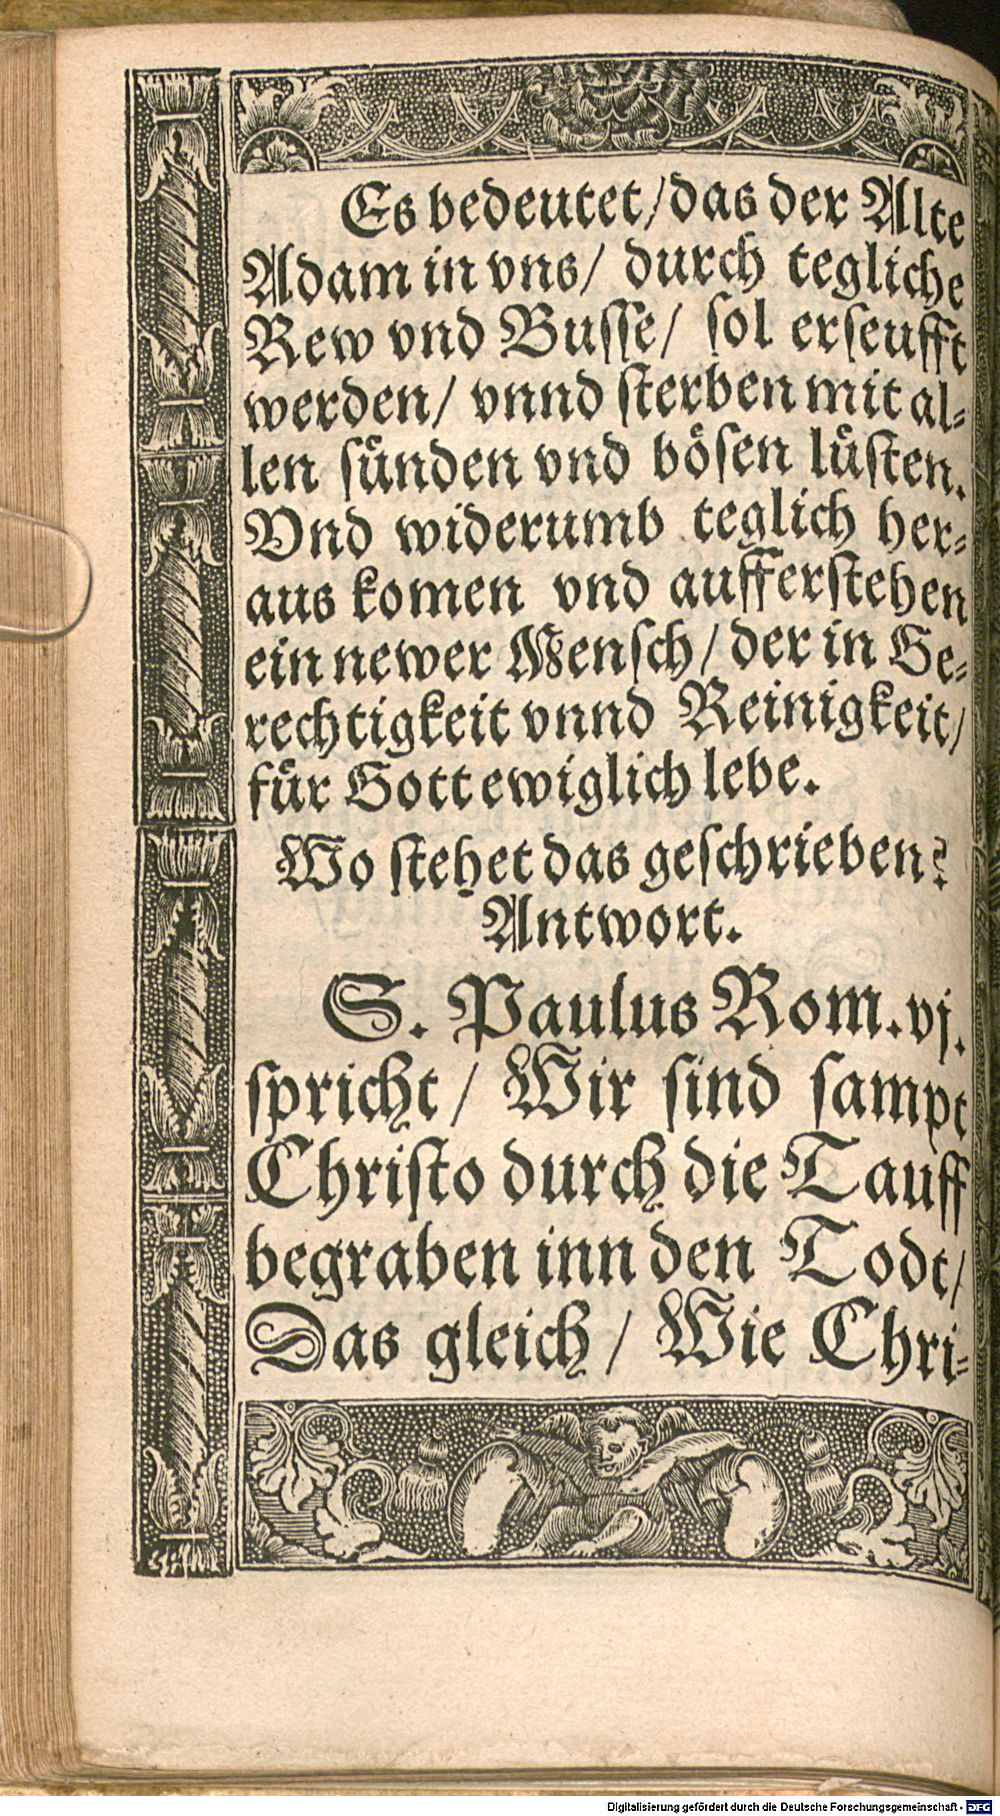 Es bedeutet/das der Alte
Adam in vns/ durch tegliche
Rew vnd Busse/ sol erseufft
werden/ vnnd sterben mit al-
len sünden vnd bösen lüsten.
Vnd widerumb teglich her-
aus komen vnd aufferstehen
ein newer Mensch/ der in Ge-
rechtigkeit vnnd Reinigkeit/
für Gott ewiglich lebe.
Wo stehet das geschrieben?
Antwort.
S. Paulus Rom. vj.
spricht/ Wir sind sampt
Christo durch die Tauff
begraben inn den Todt/
Das gleich/ Wie Chri-
Digitalisierung gefördert durch die Deutsche Forschungsgemeinschaft - DFG